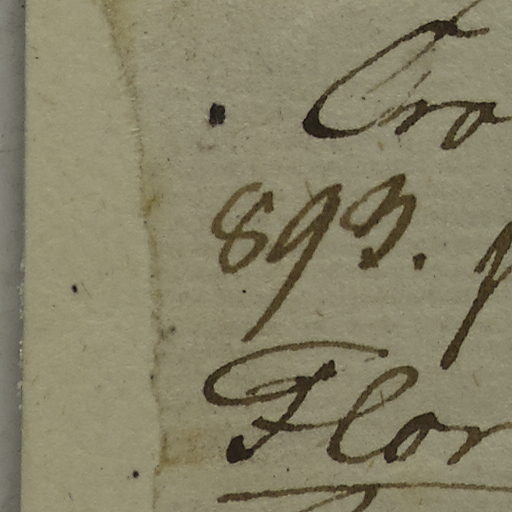 Cra
893. p
Flor